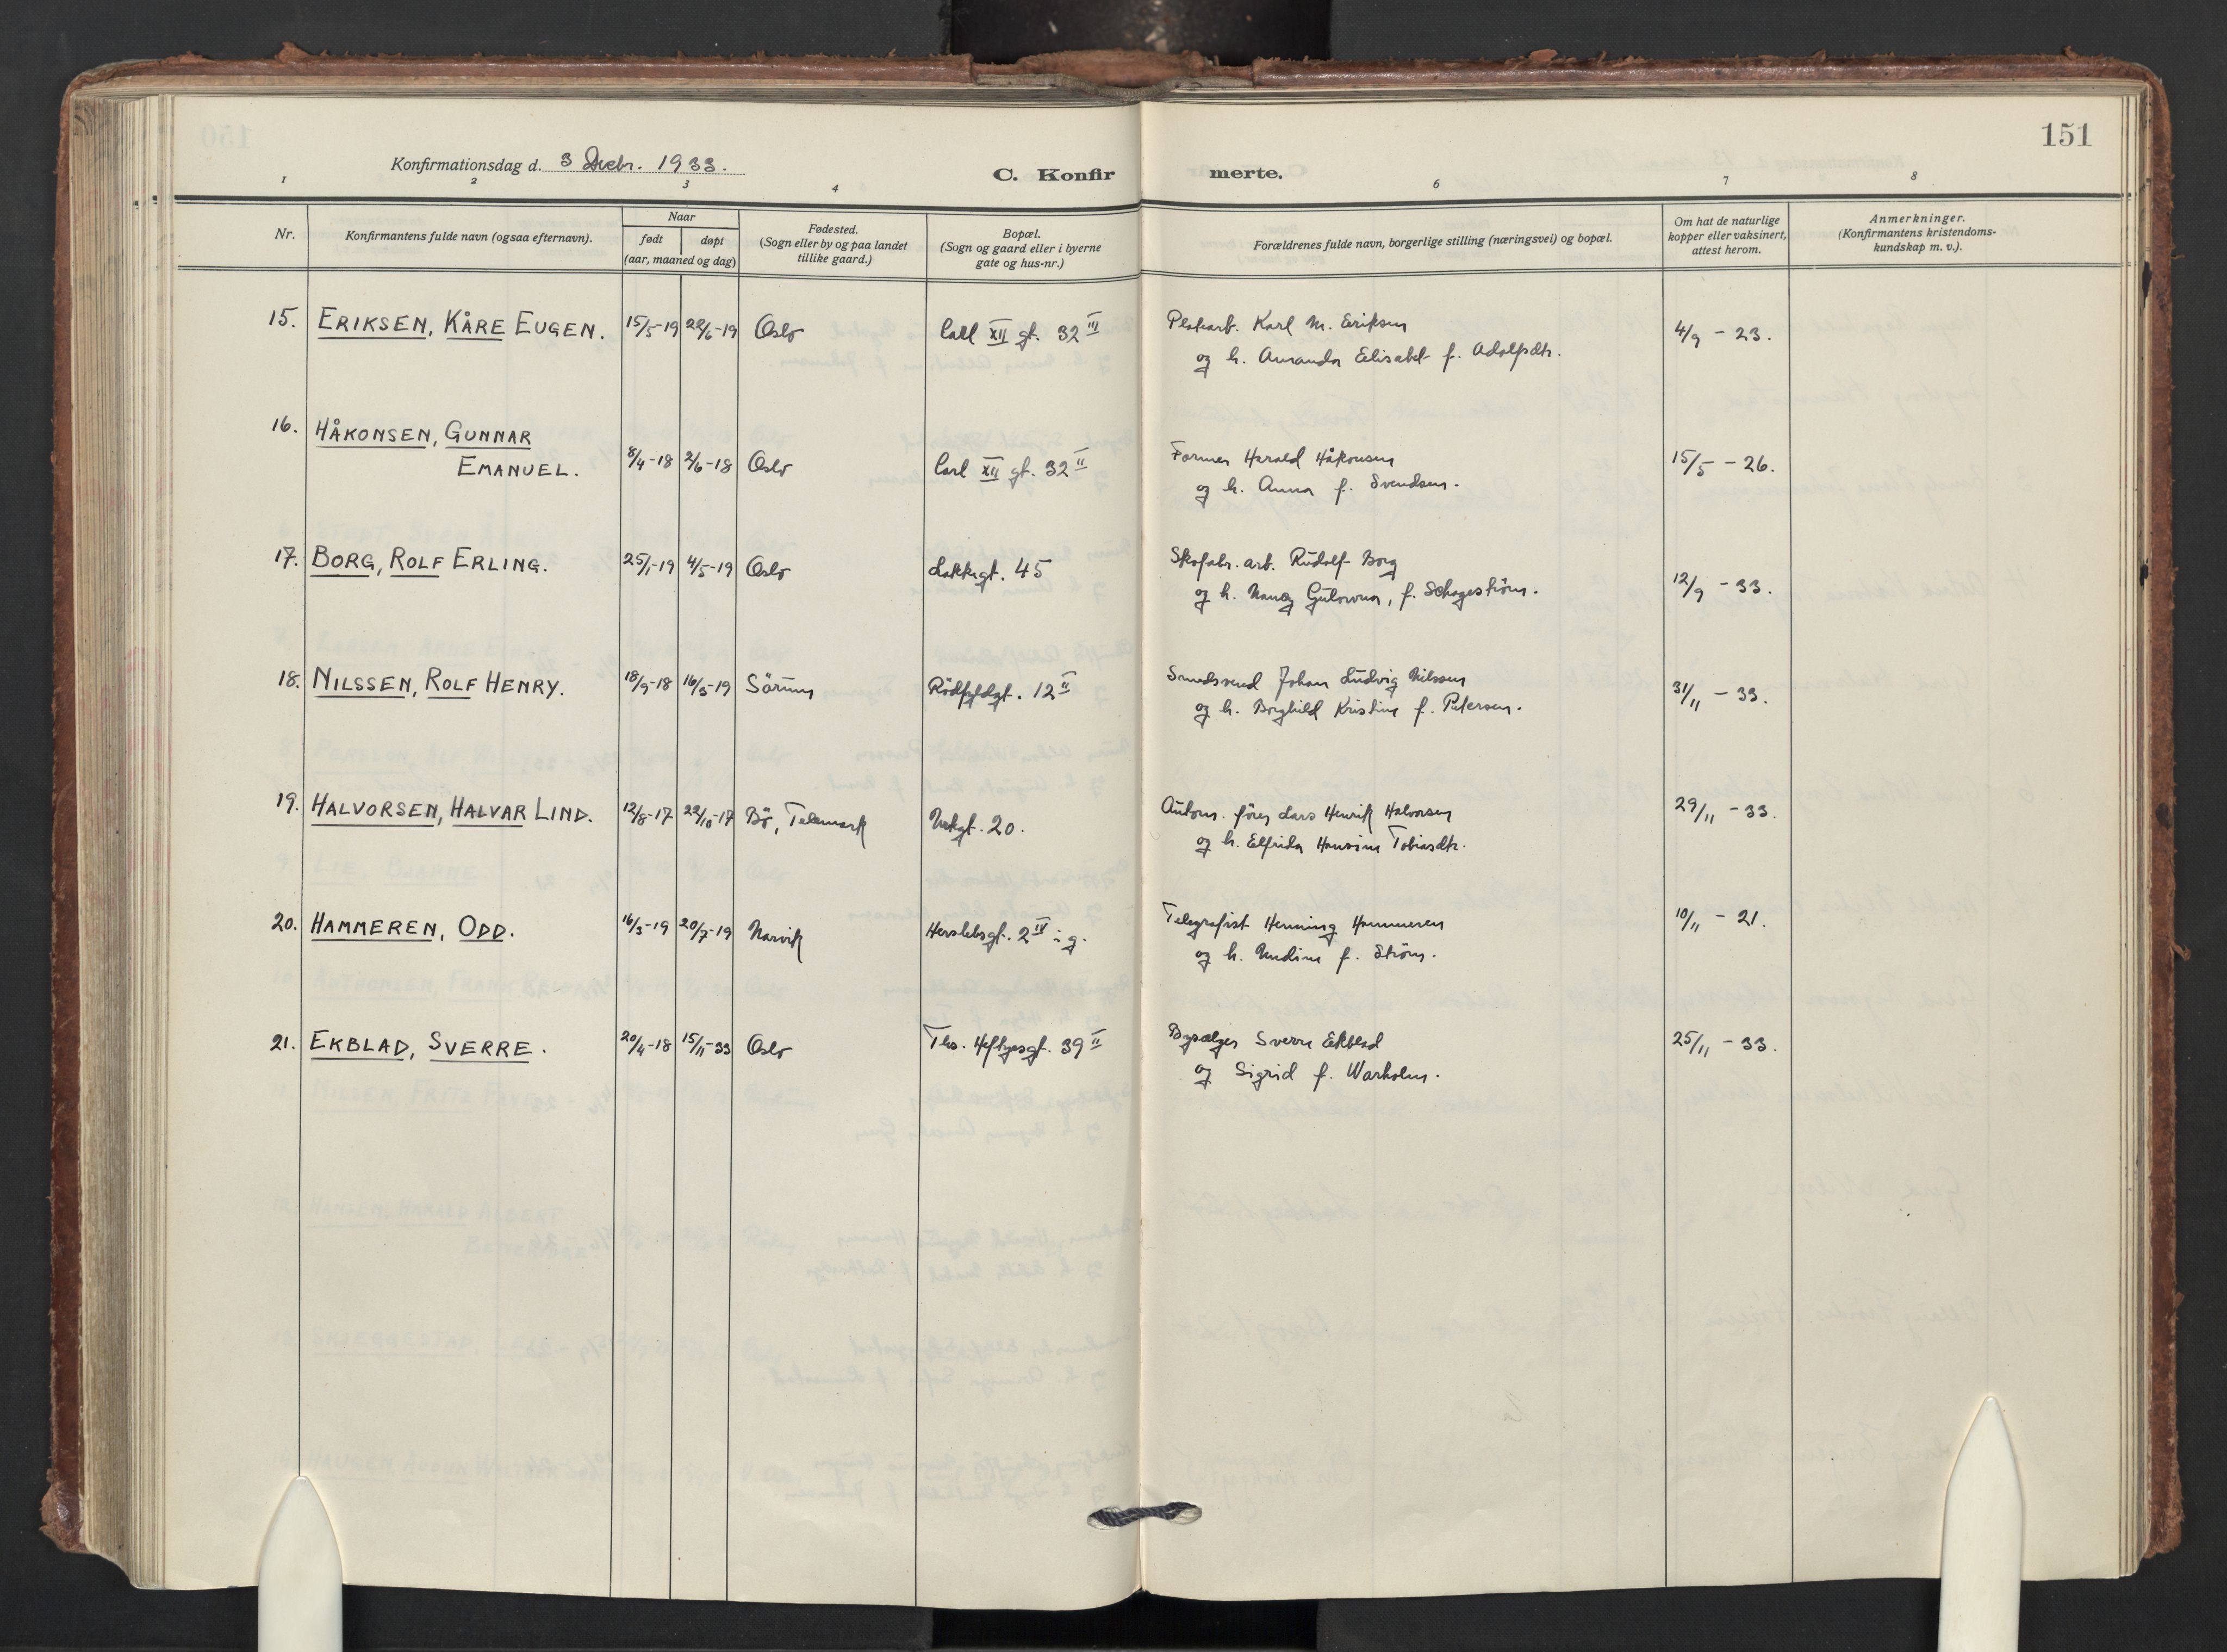 151
Konfirmationsdag d. 3 Decbr. 1933.
C. Konfirmerte.
1 2 3 4 6 7 8
Nr.
Konfirmantens fulde navn (ogsaa efternavn).
Naar
født døpt
(aar, maaned og dag)
Fødested.
(Sogn eller by og paa landet
tillike gaard.)
Bopæl.
(Sogn og gaard eller i byerne
gate og hus-nr.)
Forældrenes fulde navn, borgerlige stilling (næringsvei) og bopæl.
Om hat de naturlige
kopper eller vaksinert,
attest herom.
Anmerkninger.
(Konfirmantens kristendoms-
kundskap m. v.).
15. ERIKSEN, KÅRE EUGEN. 15/5-19 22/6-19 Oslo Carl XII gt. 32 III Karl M. Eriksen 4/9 - 23.
og h. Amanda Elisabet f. Adolfsdtr.
16. HÅKONSEN, GUNNAR
EMANUEL. 8/4-18 2/6-18 Oslo Carl XII gt. 32 II Former Harald Håkonsen 15/5 - 26.
og h. Anna f. Svendsen.
17. BORG, ROLF ERLING. 25/1-19 4/5-19 Oslo Lakkegt. 45 Skofabr. arb. Rudolf Borg 12/9 - 33.
og h. Nancy f. Schageström.
18. NILSSEN, ROLF HENRY. 18/9-18 16/3-19 Sörum Rödfyldgt. 12 II Smedsvend Johan Ludvig Nilssen 31/11 - 33.
og h. Borghild Kristine f. Petersen.
19. HALVORSEN, HALVAR LIND. 12/8-17 22/10-17 Bö, Telemark Urtegt. 20. Autom. förer Lars Henrik Halvorsen 29/11 - 33.
og h. Elfrida Hansine Tobiasdtr.
20. HAMMEREN, ODD. 16/3-19 20/7-19 Narvik Herslebsgt. 2 IV i g. Telegrafist Henning Hammeren 10/11 - 21.
og h. Undine f. Ström.
21. EKBLAD, SVERRE. 20/4-18 15/11-33 Oslo Ths. Heftyesgt. 39 II Bysælger Sverre Ekblad 25/11 - 33.
og Sigrid f. Warholm.